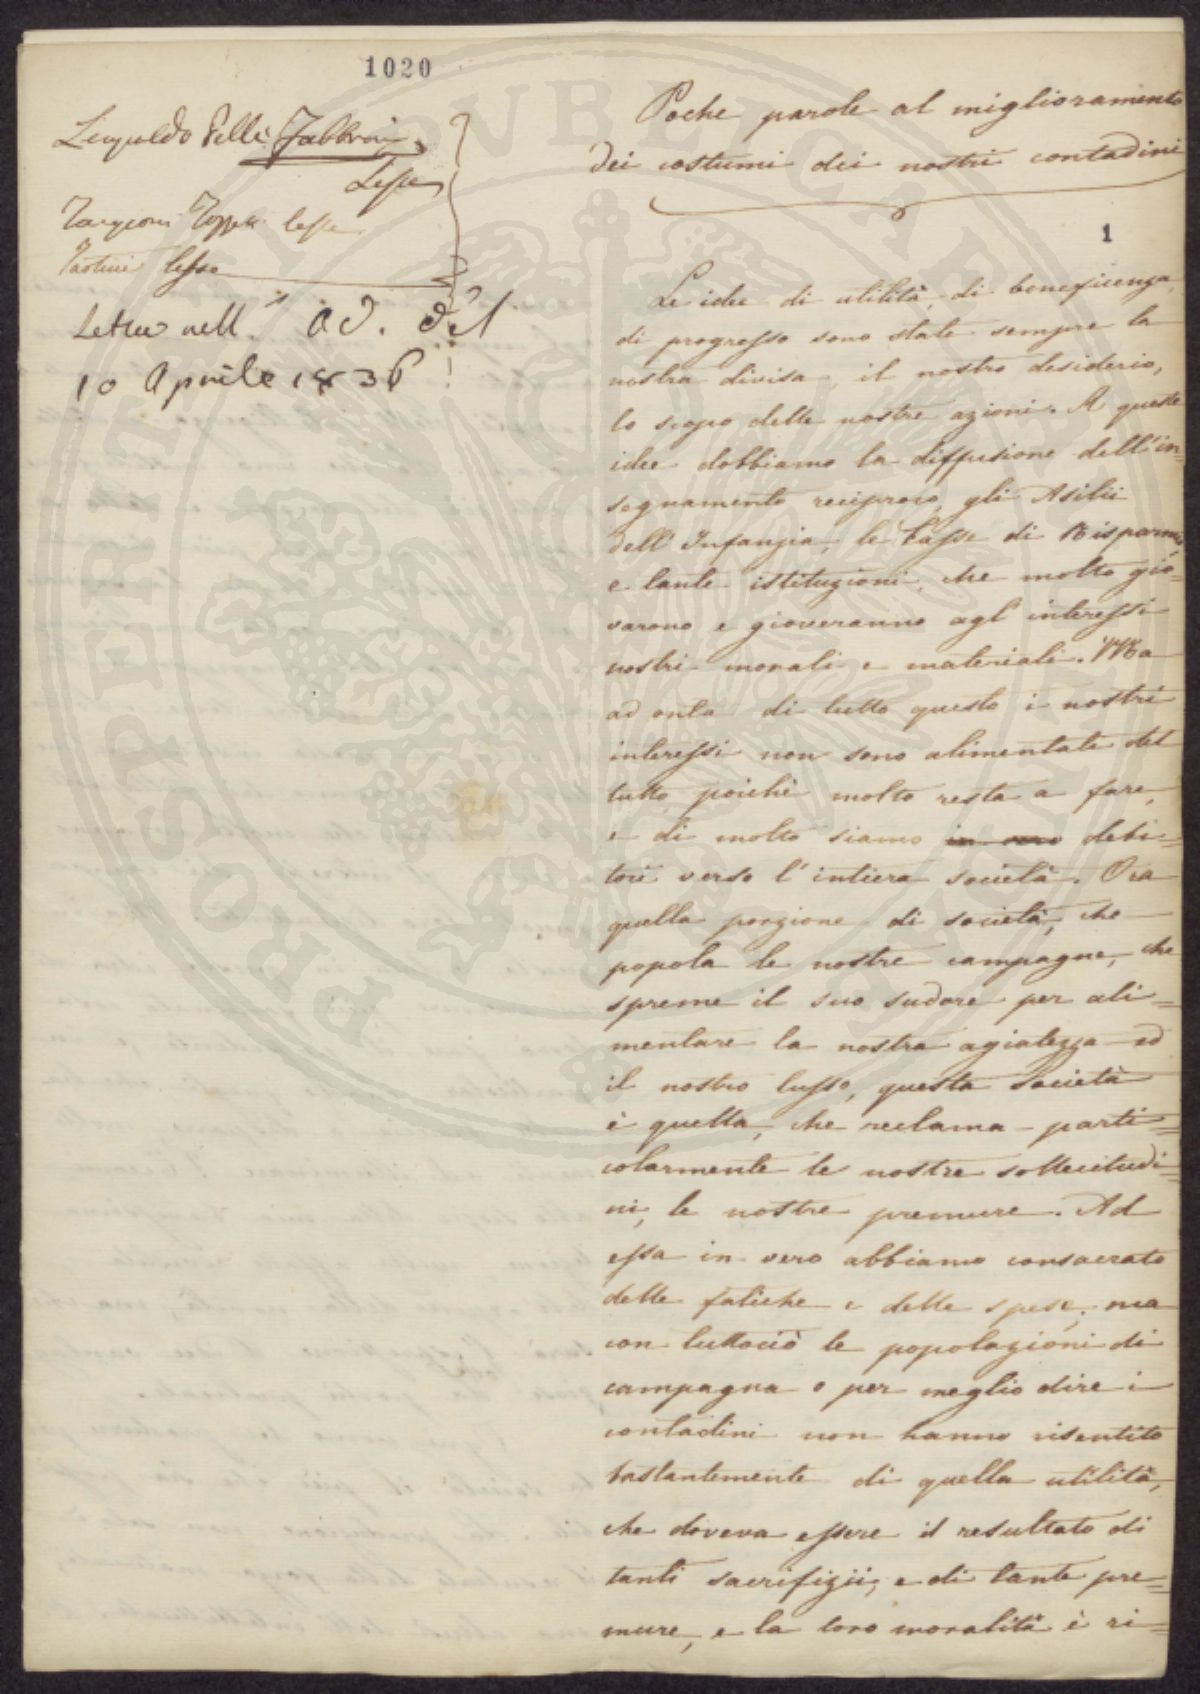 1020
Leopoldo Pelli Fabbroni
Lesse
Targioni Tozzetti lesse
lesse
Letta nell' Ad. del
10 Aprile 1836
Poche parole al miglioramento
dei costumi dei nostri contadini
1
Le idee di utilità, di beneficenza,
di progresso sono state sempre la
nostra divisa, il nostro desiderio,
lo scopo delle nostre azioni. A queste
idee dobbiamo la diffusione dell'in=
segnamento reciproco, gli Asilii
dell'Infanzia, le Casse di Risparmio,
e tante istituzioni, che molto gio=
varono e gioveranno agl'interessi
nostri morali e materiali. Ma
ad onta di tutto questo i nostri
interessi non sono alimentati del
tutto, poichè molto resta a fare,
e di molto siamo in vero debi=
tori verso l'intiera società. Ora
quella porzione di società, che
popola le nostre campagne, che
spreme il suo sudore per ali=
mentare la nostra agiatezza ed
il nostro lusso, questa società
è quella, che reclama parti=
colarmente le nostre sollecitudi=
ni, le nostre premure. Ad
essa in vero abbiamo consacrato
delle fatiche e delle spese, ma
con tuttociò le popolazioni di
campagna o per meglio dire i
contadini non hanno risentito
bastantemente di quella utilità,
che doveva essere il resultato di
tanti sacrifizii, e di tante pre=
mure, e la loro moralità è ri=
PROSPERITATI PUBLICAE AUGENDAE